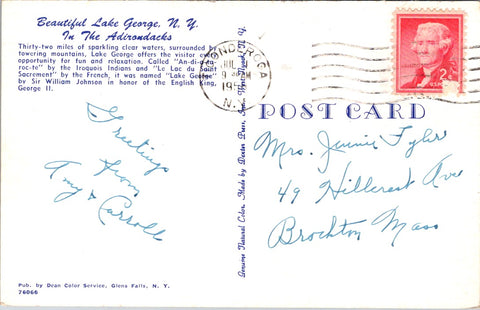 Beautiful Lake George, N. Y.
In The Adirondacks
Thirty-two miles of sparkling clear waters, surrounded by
towering mountains, Lake George offers the visitor
opportunity for fun and relaxation. Called "An-di-
roc-te" by the Iroquois Indians and "Le Lac du Saint
Sacrement" by the French, it was named "Lake George"
by Sir William Johnson in honor of the English King,
George II.
TICONDEROGA
JUL
9
PM
195
N.Y.
2¢
POST CARD
Greetings
from
Amy &
Carroll
Mrs. Jennie Tyler
49 Hillcrest Ave
Brockton Mass
Genuine Natural Color. Made by Dexter Press, Inc. West Nyack, N. Y.
Pub. by Dean Color Service, Glens Falls, N. Y.
76066